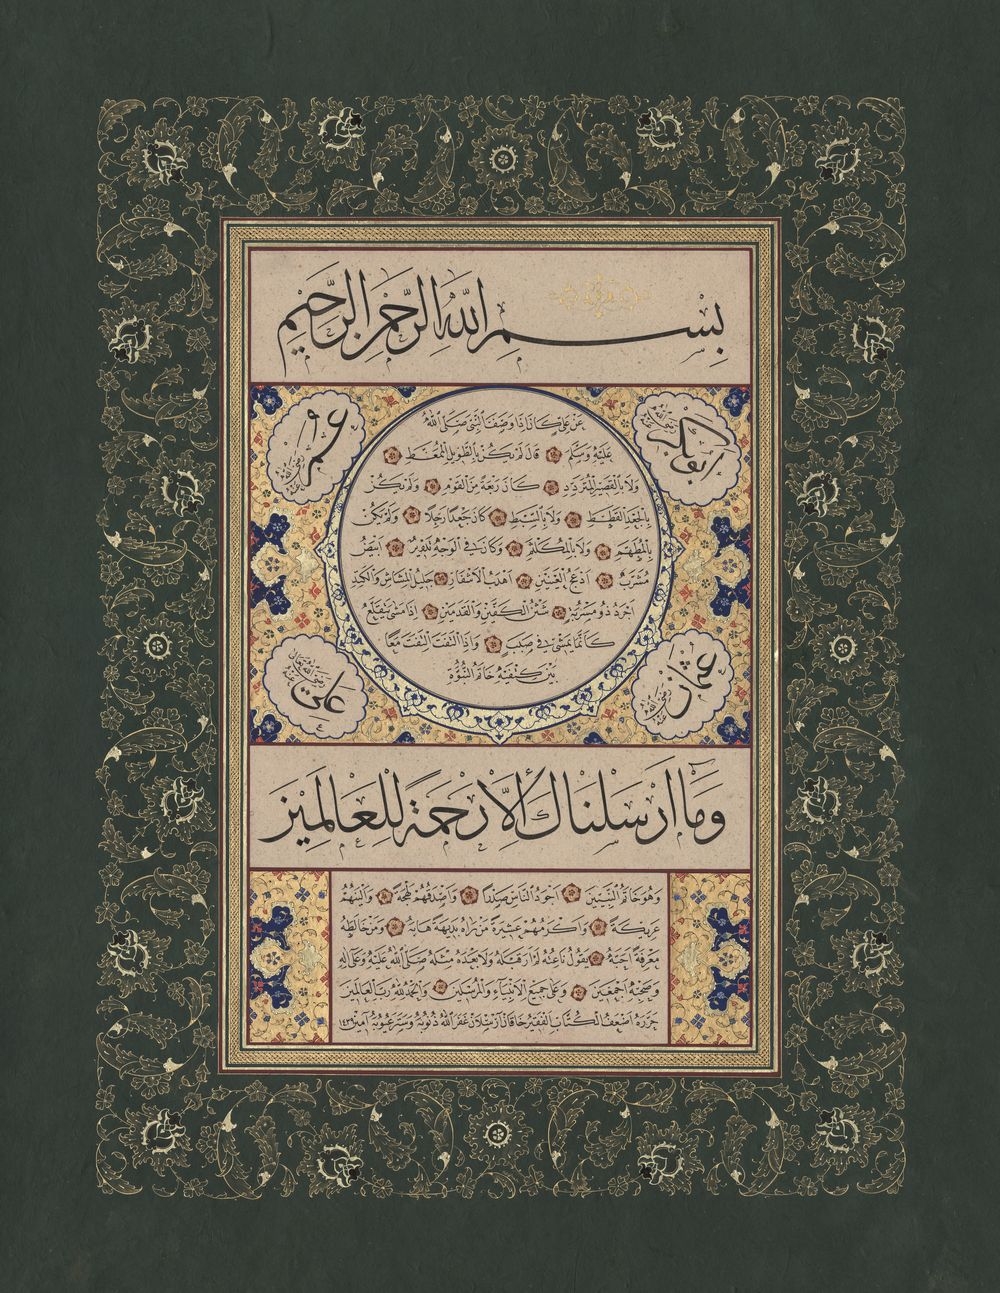 بِسْمِ اللّٰهِ الرَّحْمٰنِ الرَّحِيمِ
ابوبكر رضى الله عنه
عمر رضى الله عنه
عَنْ عَلِىٍّ كَانَ اِذَا وَصَفَ النَّبِىَّ صَلَّى اللّٰهُ
عَلَيْهِ وَسَلَّمَ قَالَ لَمْ يَكُنْ بِالطَّوِيلِ الْمُمَّغِطِ
وَلَا بِالْقَصِيرِ الْمُتَرَدِّدِ كَانَ رَبْعَةً مِنَ الْقَوْمِ وَلَمْ يَكُنْ
بِالْجَعْدِ الْقَطَطِ وَلَا بِالسَّبِطِ كَانَ جَعْدًا رَجِلًا وَلَمْ يَكُنْ
بِالْمُطَهَّمِ وَلَا بِالْمُكَلْثَمِ وَكَانَ فِى الْوَجْهِ تَدْوِيرٌ اَبْيَضُ
مُشْرَبٌ اَدْعَجُ الْعَيْنَيْنِ اَهْدَبُ الْاَشْفَارِ جَلِيلُ الْمُشَاشِ وَالْكَتَدِ
اَجْرَدُ ذُو مَسْرُبَةٍ شَثْنُ الْكَفَّيْنِ وَالْقَدَمَيْنِ اِذَا مَشٰى يَتَقَلَّعُ
كَاَنَّمَا يَمْشِى فِى صَبَبٍ وَاِذَا الْتَفَتَ الْتَفَتَ مَعًا
بَيْنَ كَتِفَيْهِ خَاتَمُ النُّبُوَّةِ
عثمان رضى الله عنه
على رضى الله تعالى عنه
وَمَا اَرْسَلْنَاكَ اِلَّا رَحْمَةً لِلْعَالَمِينَ
وَهُوَ خَاتَمُ النَّبِيِّينَ اَجْوَدُ النَّاسِ صَدْرًا وَاَصْدَقُهُمْ لَهْجَةً وَاَلْيَنُهُمْ
عَرِيكَةً وَاَكْرَمُهُمْ عَشِيرَةً مَنْ رَاٰهُ بَدِيهَةً هَابَهُ وَمَنْ خَالَطَهُ
مَعْرِفَةً اَحَبَّهُ يَقُولُ نَاعِتُهُ لَمْ اَرَ قَبْلَهُ وَلَا بَعْدَهُ مِثْلَهُ صَلَّى اللّٰهُ عَلَيْهِ وَعَلٰى اٰلِهِ
وَصَحْبِهِ اَجْمَعِينَ وَعَلٰى جَمِيعِ الْاَنْبِيَاءِ وَالْمُرْسَلِينَ وَالْحَمْدُ لِلّٰهِ رَبِّ الْعَالَمِينَ
حَرَّرَهُ اَضْعَفُ الْكُتَّابِ الْفَقِيرُ خَاقَانِى اَرْسَلَان غَفَرَ اللّٰهُ ذُنُوبَهُ وَسَتَرَ عُيُوبَهُ اٰمِين